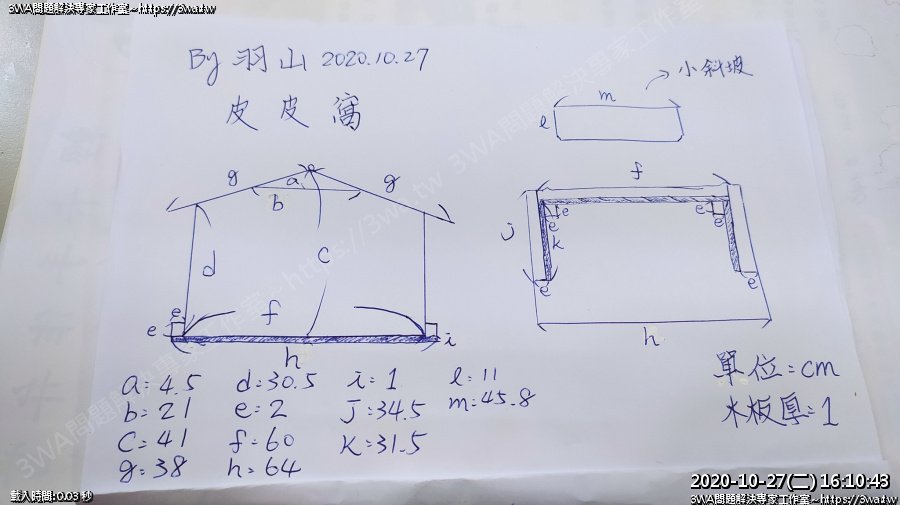 3WA問題解決專家工作室~https://3wa.tw
By 羽山 2020.10.27
皮皮窩
小斜坡
m
l
g
a
g
b
d
c
e
e
f
i
h
f
j
e
e
e
e
k
e
e
h
a=4.5 d=30.5 i=1 l=11
b=21 e=2 j=34.5 m=45.8
c=41 f=60 k=31.5
g=38 h=64
單位=cm
木板厚=1
3WA問題解決專家工作室~https://3wa.tw
載入時間:0.03 秒
2020-10-27(二) 16:10:43
3WA問題解決專家工作室~https://3wa.tw